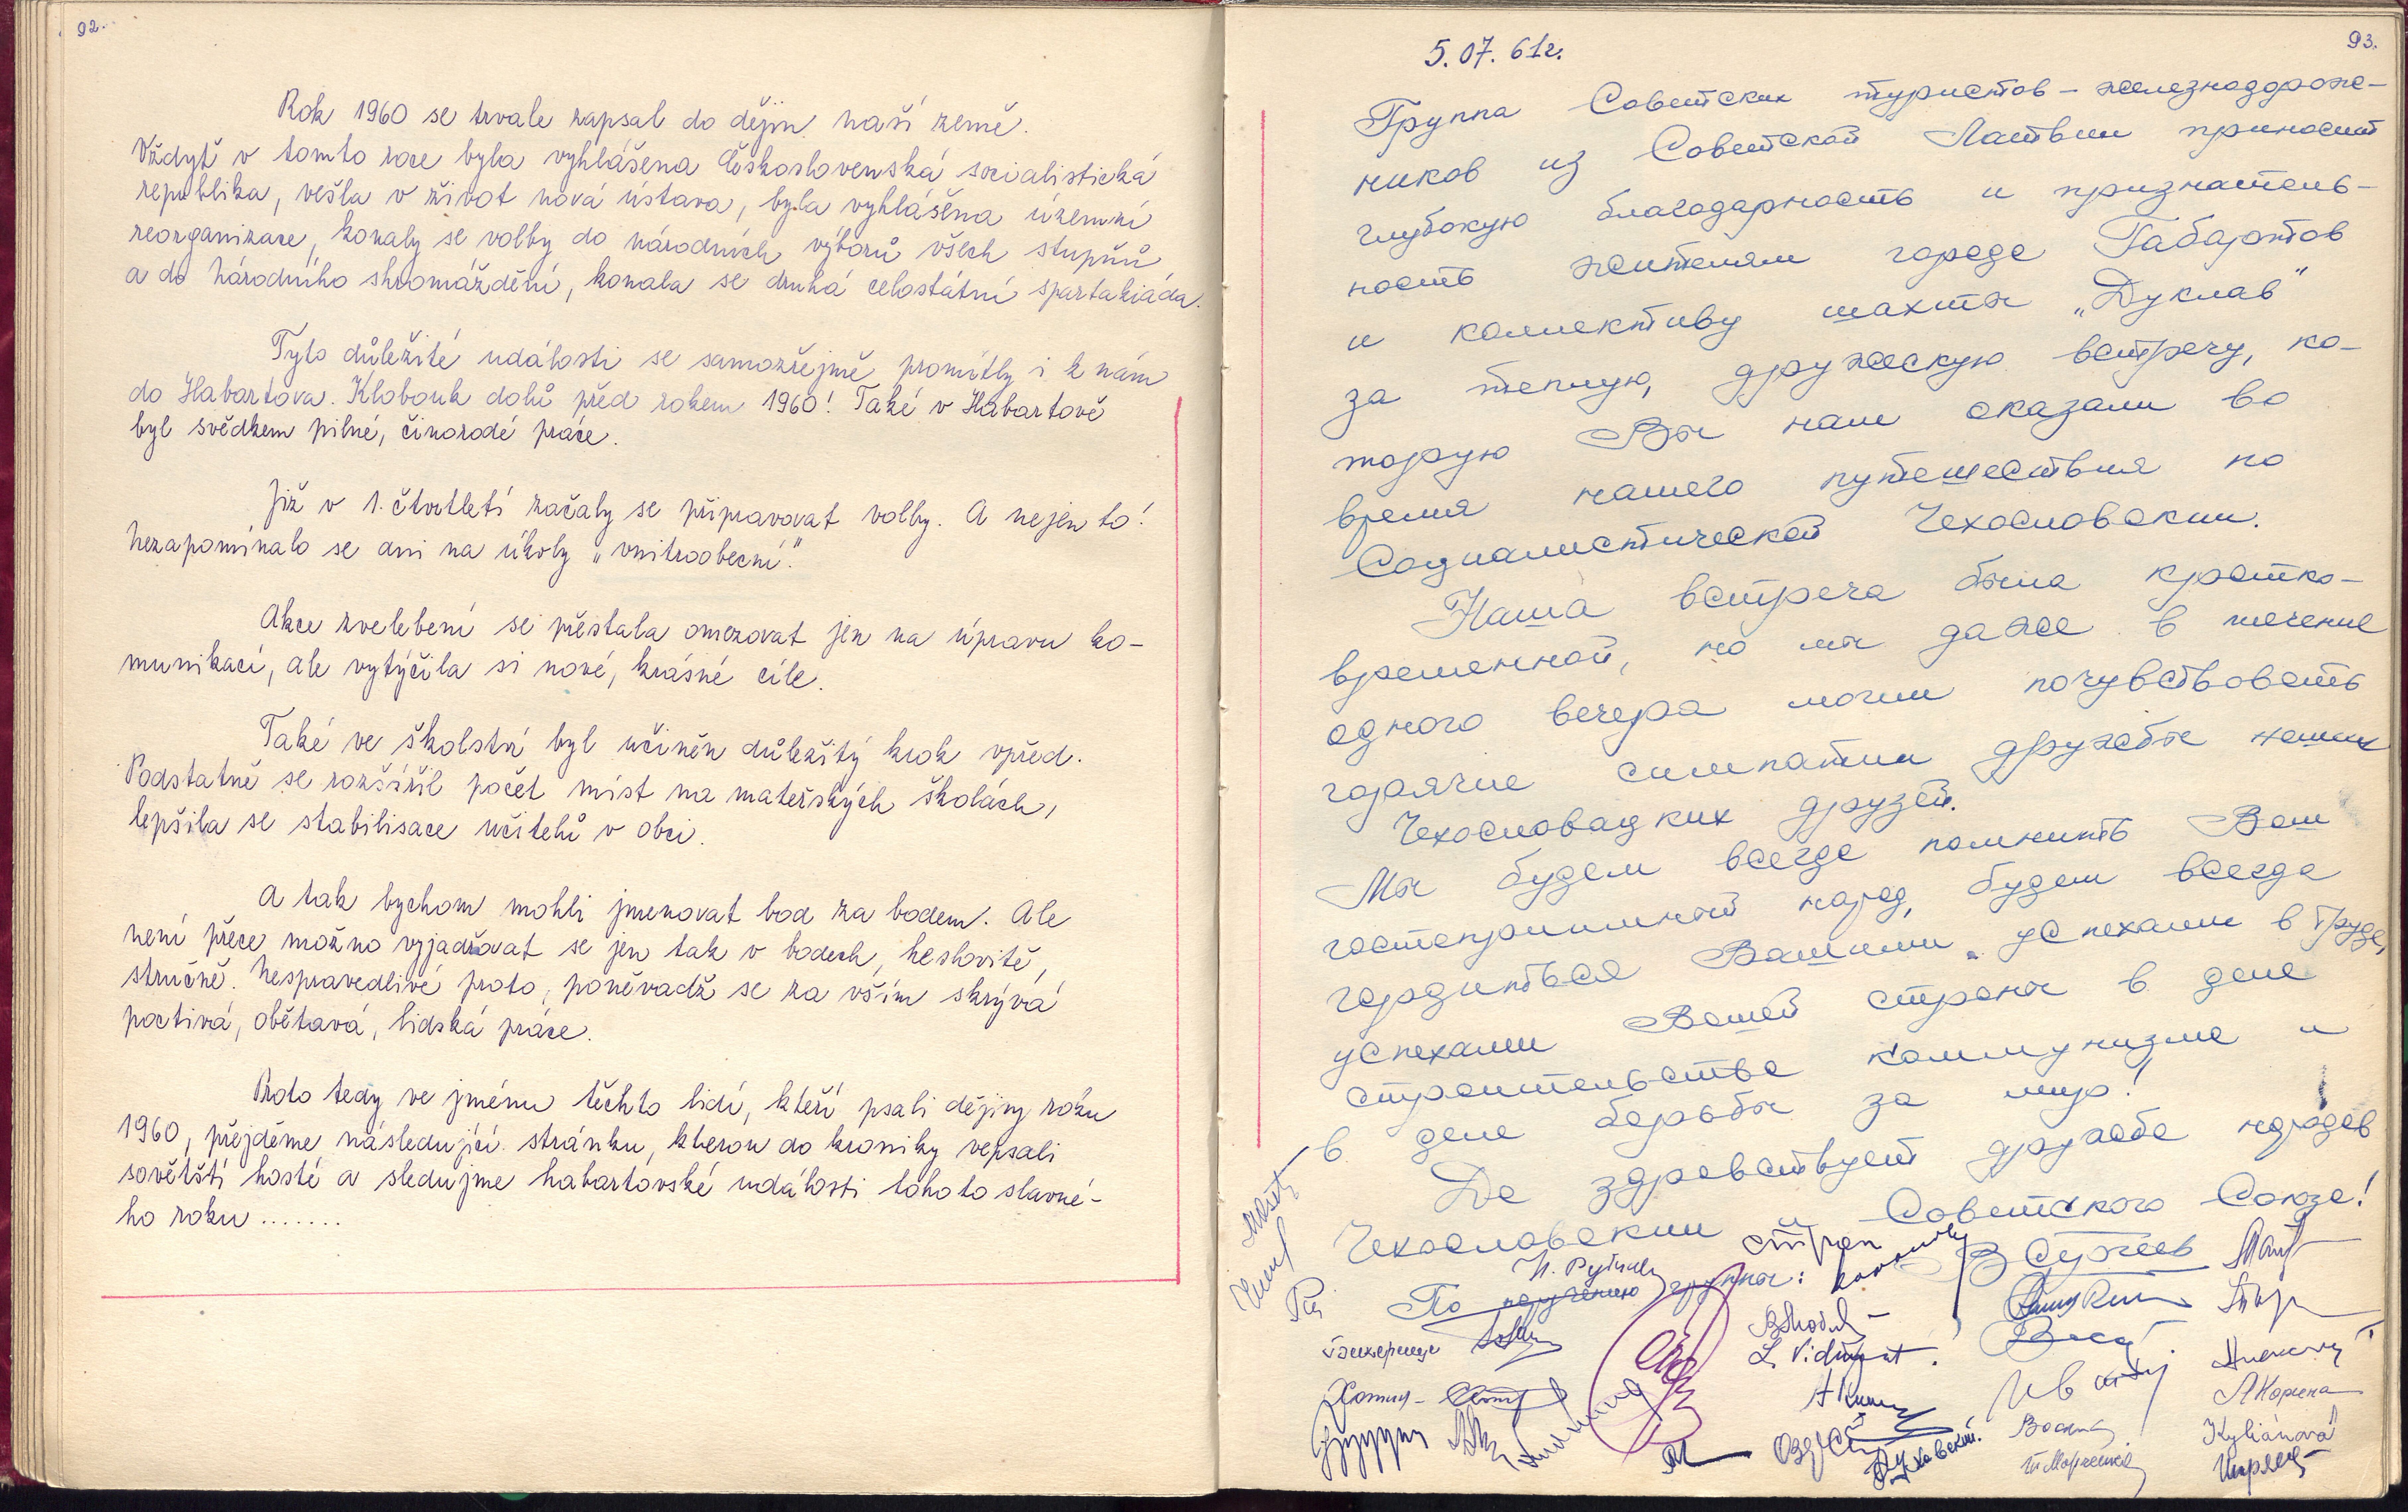 92.
Rok 1960 se trvale zapsal do dějin naší země.
Vždyť v tomto roce byla vyhlášena Československá socialistická
republika, vešla v život nová ústava, byla vyhlášena územní
reorganizace, konaly se volby do národních výborů všech stupňů
a do Národního shromáždění, konala se druhá celostátní spartakiáda.
Tyto důležité události se samozřejmě promítly i k nám
do Habartova. Klobouk dolů před rokem 1960! Také v Habartově
byl svědkem pilné, činorodé práce.
Již v 1. čtvrtletí začaly se připravovat volby. A nejen to!
Nezapomínalo se ani na úkoly „vnitroobecní."
Akce zvelebení se přestala omezovat jen na úpravu ko-
munikací, ale vytýčila si nové, krásné cíle.
Také ve školství byl učiněn důležitý krok vpřed.
Podstatně se rozšířil počet míst na mateřských školách,
lepšila se stabilisace učitelů v obci.
A tak bychom mohli jmenovat bod za bodem. Ale
není přece možno vyjadřovat se jen tak v bodech, heslovitě,
stručně. Nespravedlivé proto, poněvadž se za vším skrývá
poctivá, obětavá, lidská práce.
Proto tedy ve jménu těchto lidí, kteří psali dějiny roku
1960, přejděme následující stránku, kterou do kroniky vepsali
sovětští hosté a sledujme habartovské události tohoto slavné-
ho roku .......
93.
5. 07. 61г.
Группа Советских туристов - железнодорож-
ников из Советской Латвии приносит
глубокую благодарность и признатель-
ность жителям города Габартов
и коллективу шахты „Дуклав"
за теплую, дружескую встречу, ко-
торую Вы нам оказали во
время нашего путешествия по
Социалистической Чехословакии.
Наша встреча была кратко-
временной, но мы даже в течение
одного вечера могли почувствовать
горячие симпатии дружбы наших
Чехословацких друзей.
Мы будем всегда помнить Ваш
гостеприимный народ, будем всегда
гордиться Вашими успехами в труде,
успехами Вашей страны в деле
строительства коммунизма и
в деле борьбы за мир!
Да здравствует дружба народов
Чехословакии и Советского Союза!
По поручению группы:
В Сергеев
Kyliánová